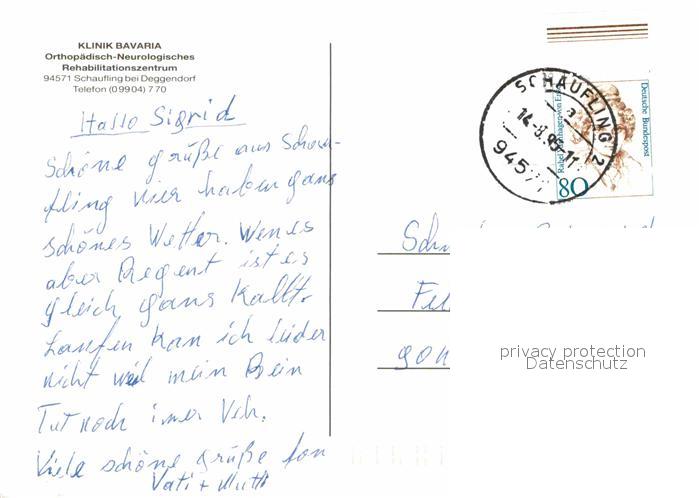 KLINIK BAVARIA
Orthopädisch-Neurologisches
Rehabilitationszentrum
94571 Schaufling bei Deggendorf
Telefon (0 99 04) 7 70
Hallo Sigrid
Schöne grüße aus Schau-
fling wier haben gans
schönes Wetter. Wen es
aber Regent ist es
gleich gans Kallt.
Laufen kan ich leider
nicht weil mein Bein
Tut noch imer Veh.
Viele schöne grüße fon
Vati + Mutti
SCHAUFLING 2
94571
Deutsche Bundespost
80
privacy protection
Datenschutz